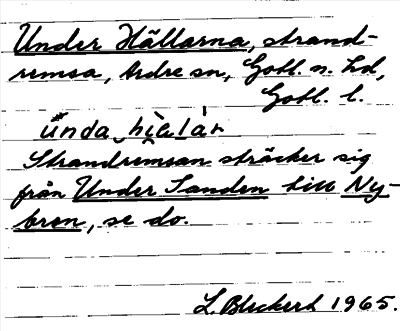 Under Hällarna, strand-
remsa, Ardre sn, Gotl. n. hd,
Gotl. l.
únda hìelàr
Strandremsan sträcker sig
från Under Sanden till Ny-
bron, se do.
L. Bleckert 1965.